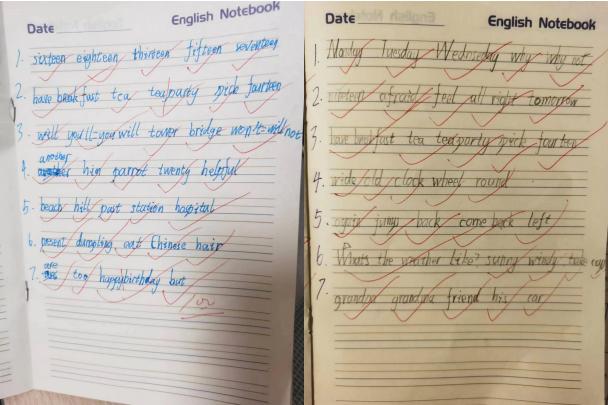 Date
English Notebook
1. sixteen eighteen thirteen fifteen seventeen
2. have breakfast tea tea party pick fourteen
3. will you'll=you will tower bridge won't=will not
another
4. him parrot twenty helpful
5. beach hill past station hospital
6. present dumpling eat Chinese hair
are
7. too happybirthday but
Date
English Notebook
1. Monday Tuesday Wednesday why why not
2. nineteen afraid feel all right tomorrow
3. have breakfast tea tea party pick fourteen
4. ride old clock wheel round
5. again jump back come back left
6. What's the weather like? sunny windy take
7. grandpa grandma friend his car